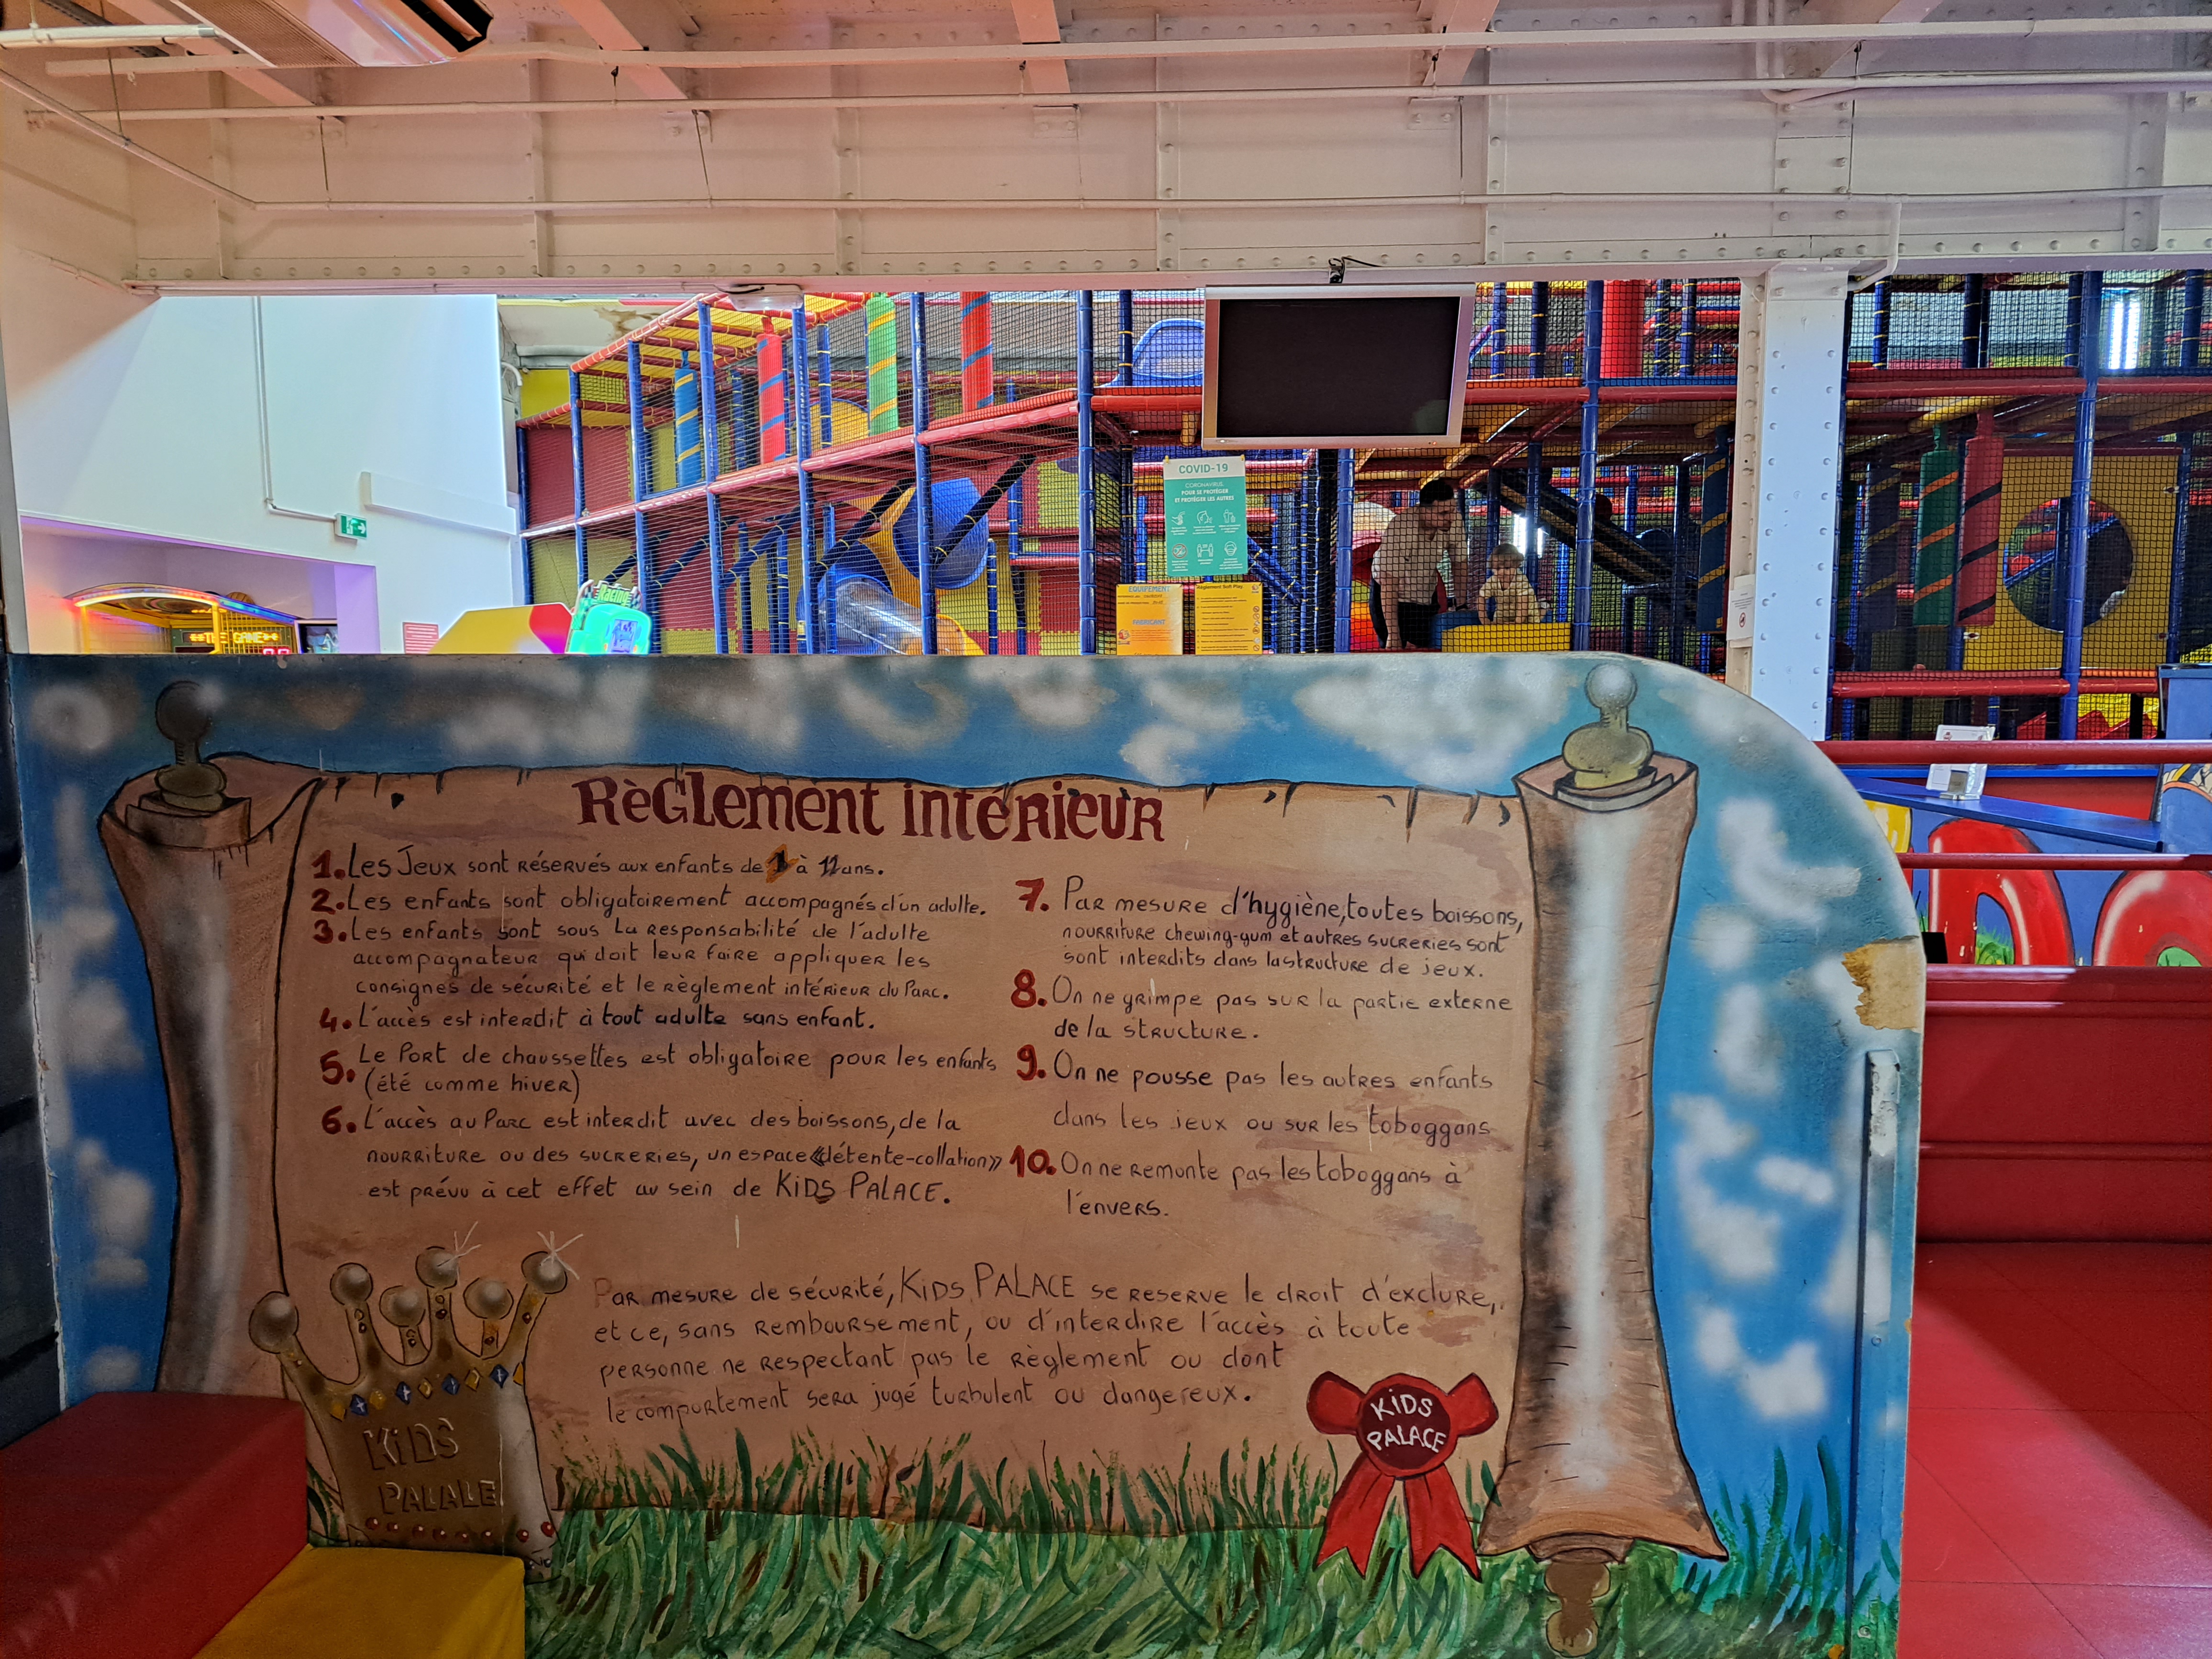 COVID-19
CORONAVIRUS,
POUR SE PROTÉGER
ET PROTÉGER LES AUTRES
Racing
THE GAME
EQUIPEMENT
FABRICANT
Règlement Soft Play
RèGLement intéRieuR
1. Les Jeux sont réservés aux enfants de 1 à 12 ans.
2. Les enfants sont obligatoirement accompagnés d'un adulte.
3. Les enfants sont sous la responsabilité de l'adulte
accompagnateur qui doit leur faire appliquer les
consignes de sécurité et le règlement intérieur du Parc.
4. L'accès est interdit à tout adulte sans enfant.
5. Le Port de chaussettes est obligatoire pour les enfants
(été comme hiver)
6. L'accès au Parc est interdit avec des boissons, de la
nourriture ou des sucreries, un espace «détente-collation»
est prévu à cet effet au sein de KIDS PALACE.
7. Par mesure d'hygiène, toutes boissons,
nourriture chewing-gum et autres sucreries sont
sont interdits dans la structure de jeux.
8. On ne grimpe pas sur la partie externe
de la structure.
9. On ne pousse pas les autres enfants
dans les jeux ou sur les toboggans
10. On ne remonte pas les toboggans à
l'envers.
Par mesure de sécurité, KIDS PALACE se reserve le droit d'exclure,
et ce, sans remboursement, ou d'interdire l'accès à toute
personne ne respectant pas le règlement ou dont
le comportement sera jugé turbulent ou dangereux.
KIDS
PALACE
KIDS
PALACE